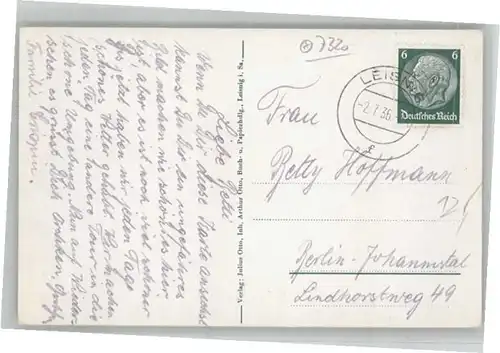 Liebe Betti
Wenn Du Dir diese Karte ansiehst
kannst Du Dir ein ungefähres
Bild machen wie schön es hier
ist, aber es ist noch viel schöner
bis jetzt haben wir jeden Tag
schönes Wetter gehabt. Wir machen
jeden Tag eine andere Tour in die
schöne Umgebung. Nun auf Wieder-
sehen es grüsst Dich
Familie
Verlag: Julius Otto, Inh. Arthur Otto, Buch- u. Papierhdlg., Leisnig i. Sa.
732a
6 6
Deutsches Reich
LEISNIG
-2.7.36
Frau
Betty Hoffmann
Berlin-Johannistal
Lindhorstweg 49